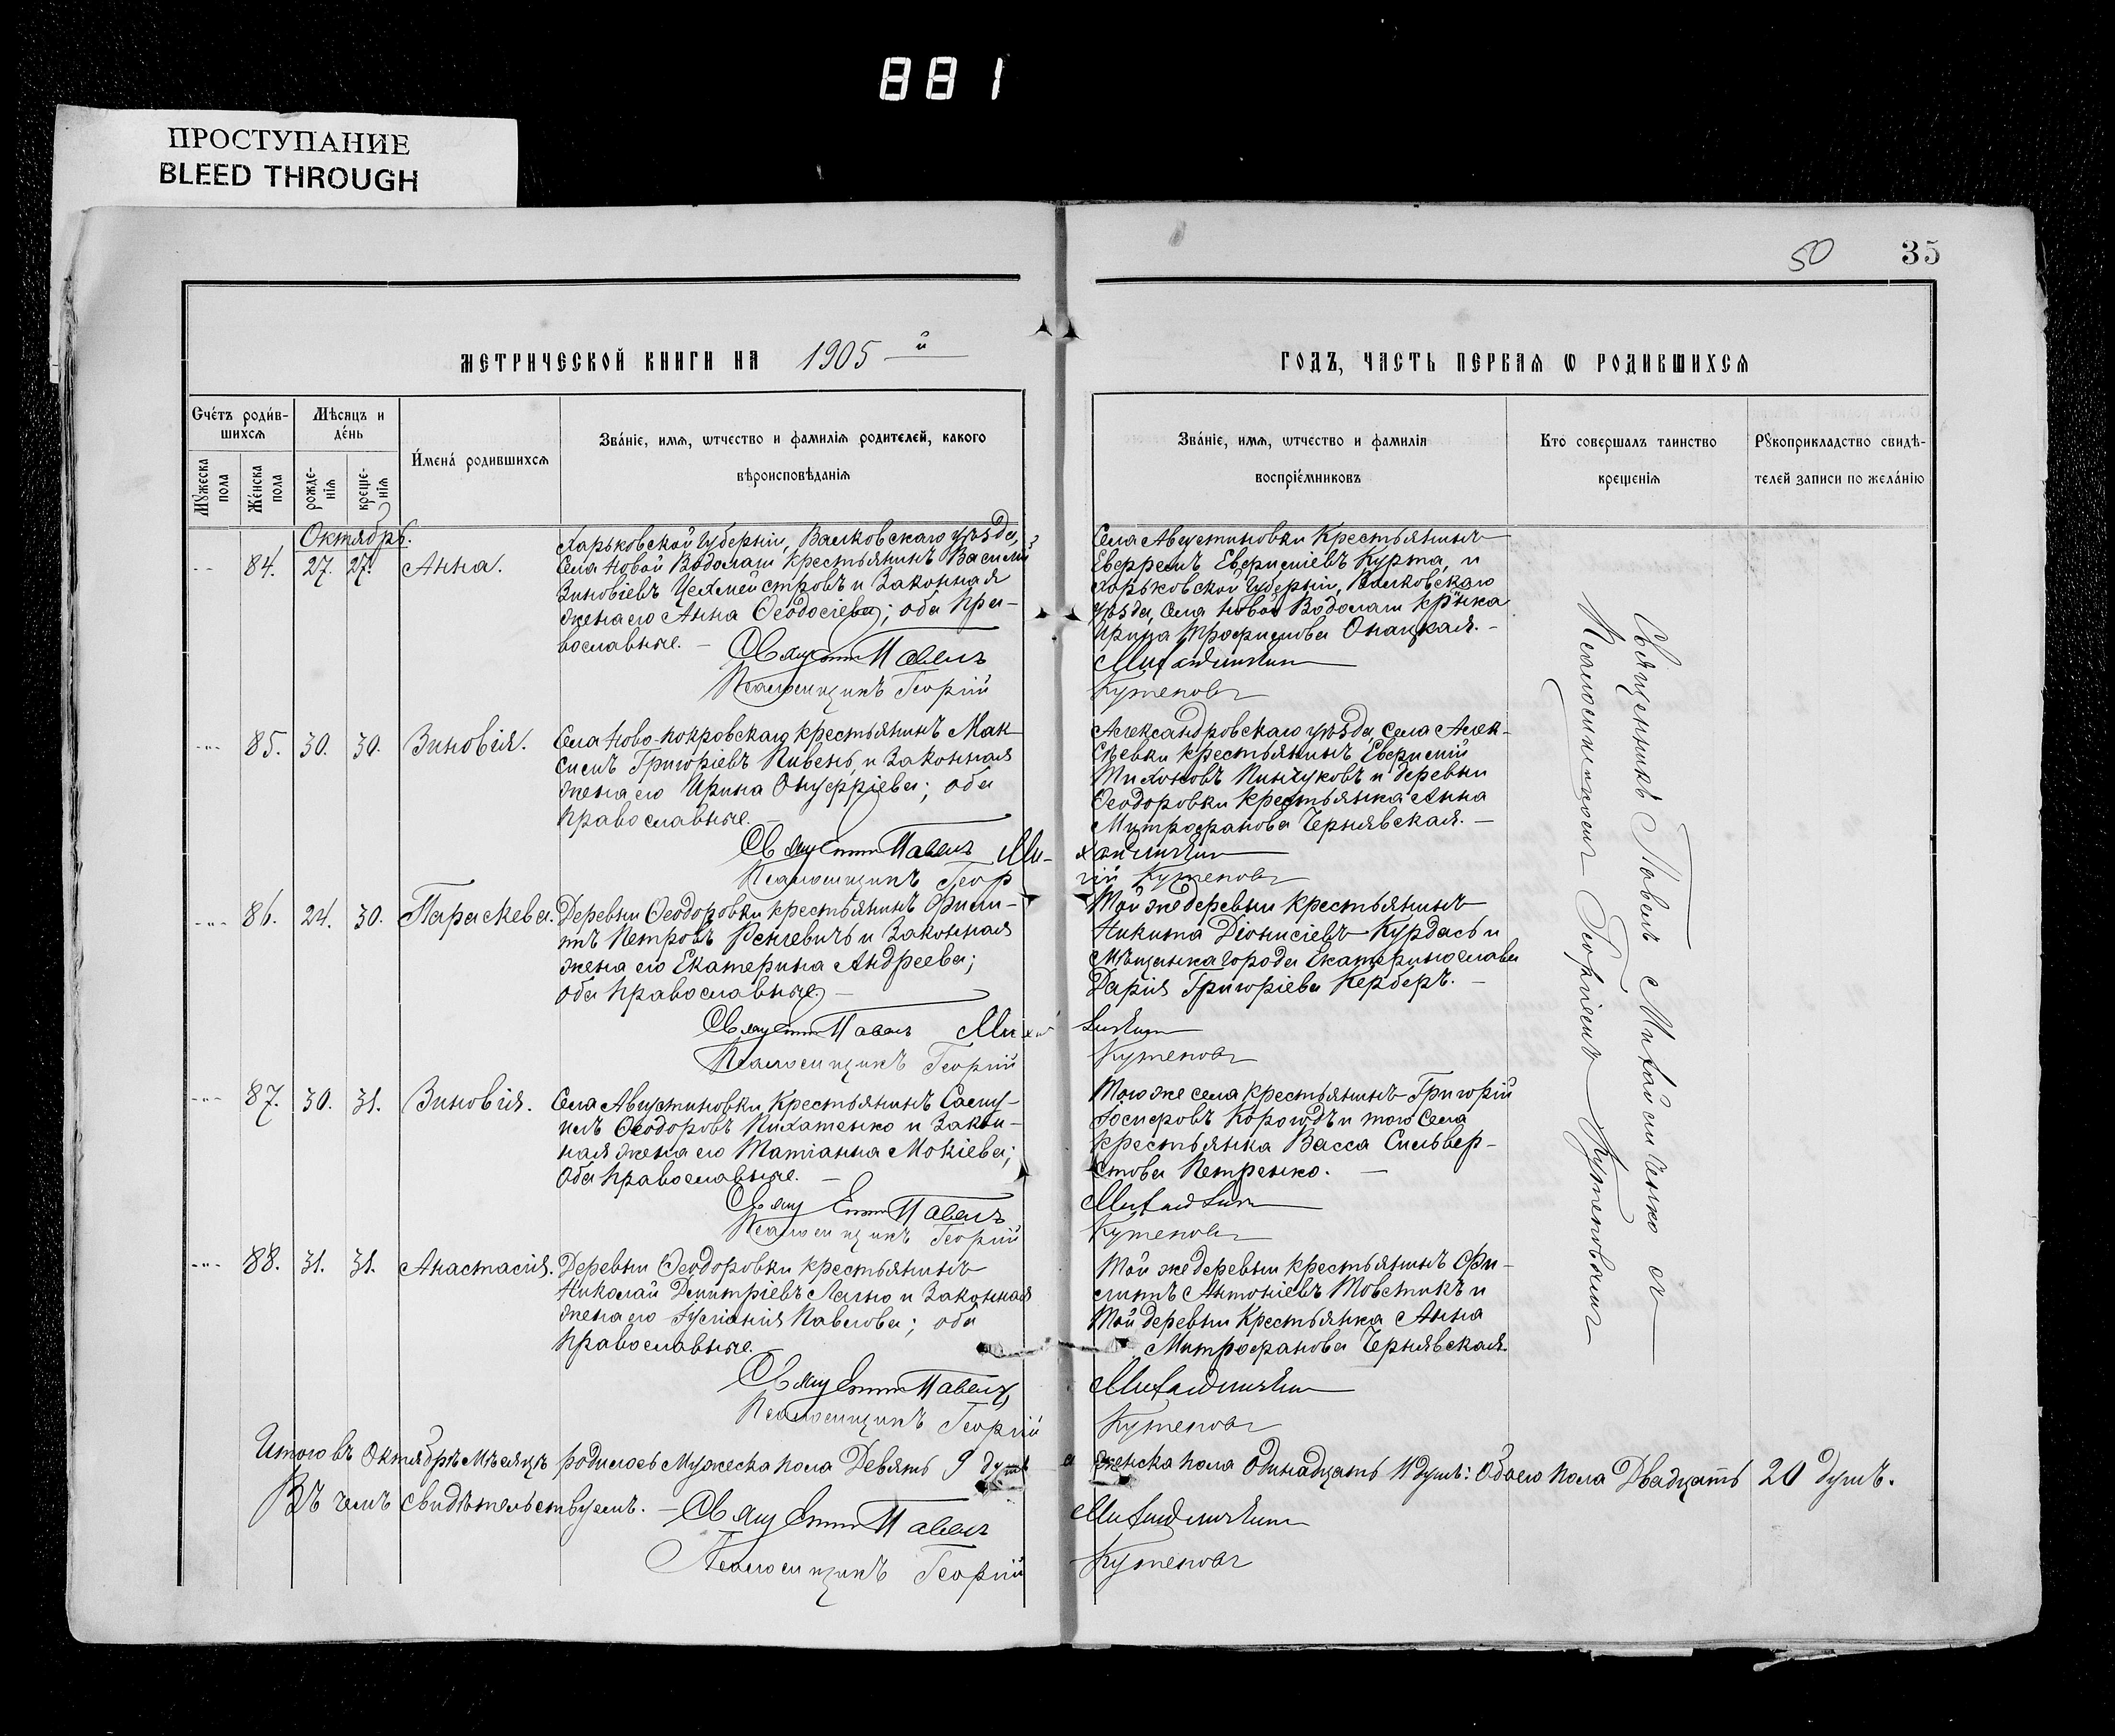 881
ПРОСТУПАНИЕ
BLEED THROUGH
50 35
МЕТРИЧЕСКОЙ КНИГИ НА 1905 й
ГОДЪ, ЧАСТЬ ПЕРВАЯ Ѡ РОДИВШИХСЯ
Счётъ роди́вшихся
Мѣсяцъ и де́нь
И́мена́ родившихся
Зва́нїе, имя, ѡтчество и фамилїя родителей, какого
вѣроисповѣданїя
Мꙋжеска пола
Же́нска пола
рожденїя
крещенїя
Зва́нїе, имя, ѡтчество и фамилїя
воспрїе́мниковъ
Кто̀ совершалъ таинство
крещенїя
Рꙋкоприкладство свидѣ-
телей записи по жела́нїю
Октябрь.
84. 27. 27. Анна.
Харьковской Губерніи, Валковскаго уѣзда,
Села Новой Водолаги крестьянинъ Василій
Зиновіевъ Цехмейстровъ и законная
жена его Анна Ѳеодосіева; оба пра-
вославные. –
Священникъ Павелъ
Псаломщикъ Георгій
Села Августиновки крестьянинъ
Евфремъ Евфиміевъ Курта, и
Харьковской Губерніи, Валковскаго
уѣзда, Села Новой Водолаги кр-нка
Ирина Трофимова Онацкая. –
Михайличенко
Кутеповъ
85. 30. 30. Зиновія.
Села Ново-Покровскаго крестьянинъ Мак-
симъ Григоріевъ Пивень, и законная
жена его Ирина Онуфріева; оба
православные. –
Священникъ Павелъ Ми-
Псаломщикъ Геор
Александровскаго уѣзда, села Алек-
сѣевки крестьянинъ Евфимій
Тихоновъ Пинчуковъ и деревни
Ѳеодоровки крестьянка Анна
Митрофанова Чернявская. –
хайличенко
гій Кутеповъ
86. 24. 30. Параскева.
Деревни Ѳеодоровки крестьянинъ Фили-
пъ Петровъ Ренгевичъ и законная
жена его Екатерина Андреева;
оба православные. –
Священникъ Павелъ Миха
Псаломщикъ Георгій
Той же деревни крестьянинъ
Никита Діонисіевъ Курдась и
мѣщанка города Екатеринослава
Дарія Григоріева Керберъ. –
Кутеповъ
87. 30. 31. Зиновія.
Села Августиновки крестьянинъ Саму-
илъ Ѳеодоровъ Пихатенко и закон-
ная жена его Татіанна Мокіева;
оба православные. –
Священникъ Павелъ
Псаломщикъ Георгій
Того же села крестьянинъ Григорій
Іосифовъ Корогодъ и того села
крестьянка Васса Сильвер-
стова Петренко. –
Михайличенко
Кутеповъ
88. 31. 31. Анастасія.
Деревни Ѳеодоровки крестьянинъ
Николай Димитріевъ Лагно и законная
жена его Іуліанія Павлова; оба
православные.
Священникъ Павелъ
Псаломщикъ Георгій
Той же деревни крестьянинъ Фи-
липпъ Антоніевъ Товстикъ и
той деревни крестьянка Анна
Митрофанова Чернявская.
Михайличенко
Кутеповъ
Священникъ Павелъ Михайличенко съ
Псаломщикомъ Георгіемъ Кутеповымъ
Итого въ Октябрѣ Мѣсяцѣ родилось Мужеска пола Девять 9 душъ а женска пола одинадцать 11 душъ: Обоего пола Двадцать 20 душъ.
Въ чемъ свидѣтельствуемъ. – Священникъ Павелъ Михайличенко
Псаломщикъ Георгій Кутеповъ